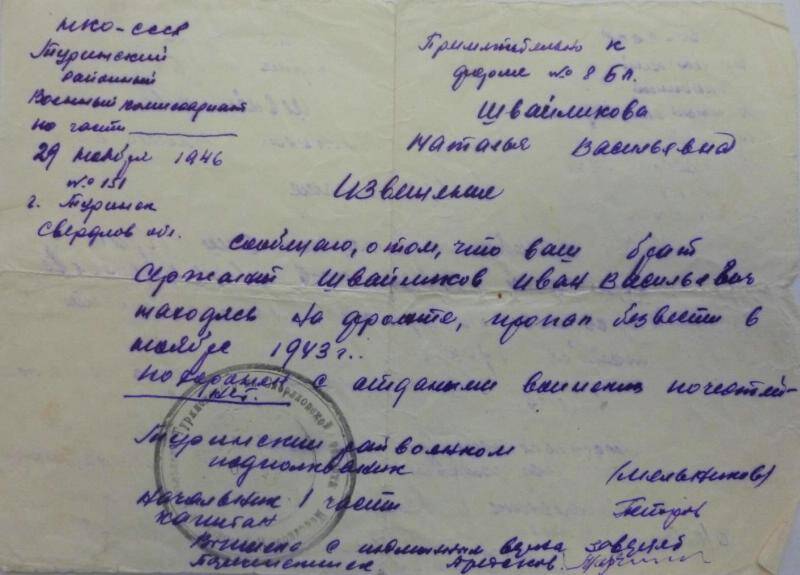 НКО-СССР
Туринский
районный
Военный комиссариат
по части
29 ноября 1946
№ 151
г. Туринск
Свердлов обл.
Применительно к
форме № 8 БП.
Швайликова
Наталья Васильевна
Извещение
Сообщаю, о том, что ваш брат
Сержант Швайликов Иван Васильевич
находясь на фронте, пропал безвести в
ноябре 1943 г..
похоронен с отданыем воинских почестей-
нет.
Туринский райвоенком
подполковник (Мельников)
Начальник 1 части
капитан Петров
с подлинным верно